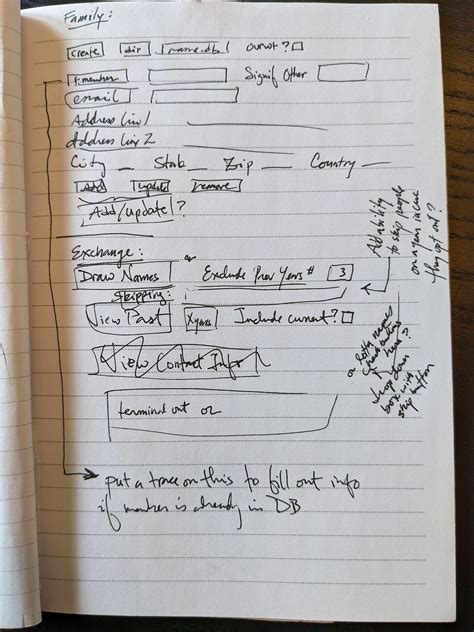 Family:
create dir name.db overwrt?
f.member Signif Other
email
Address Line 1
Address Line 2
City State Zip Country
Add update remove
Add/update?
Exchange: or
Draw Names Exclude Prev Years # 3
skipping:
View Past X years Include current?
View Contact Info
terminal out or
put a trace on this to fill out info
if member is already in DB
Add ability
to skip people
on a year in case
they opt out?
or
names
here?
drop down
box with
skip button